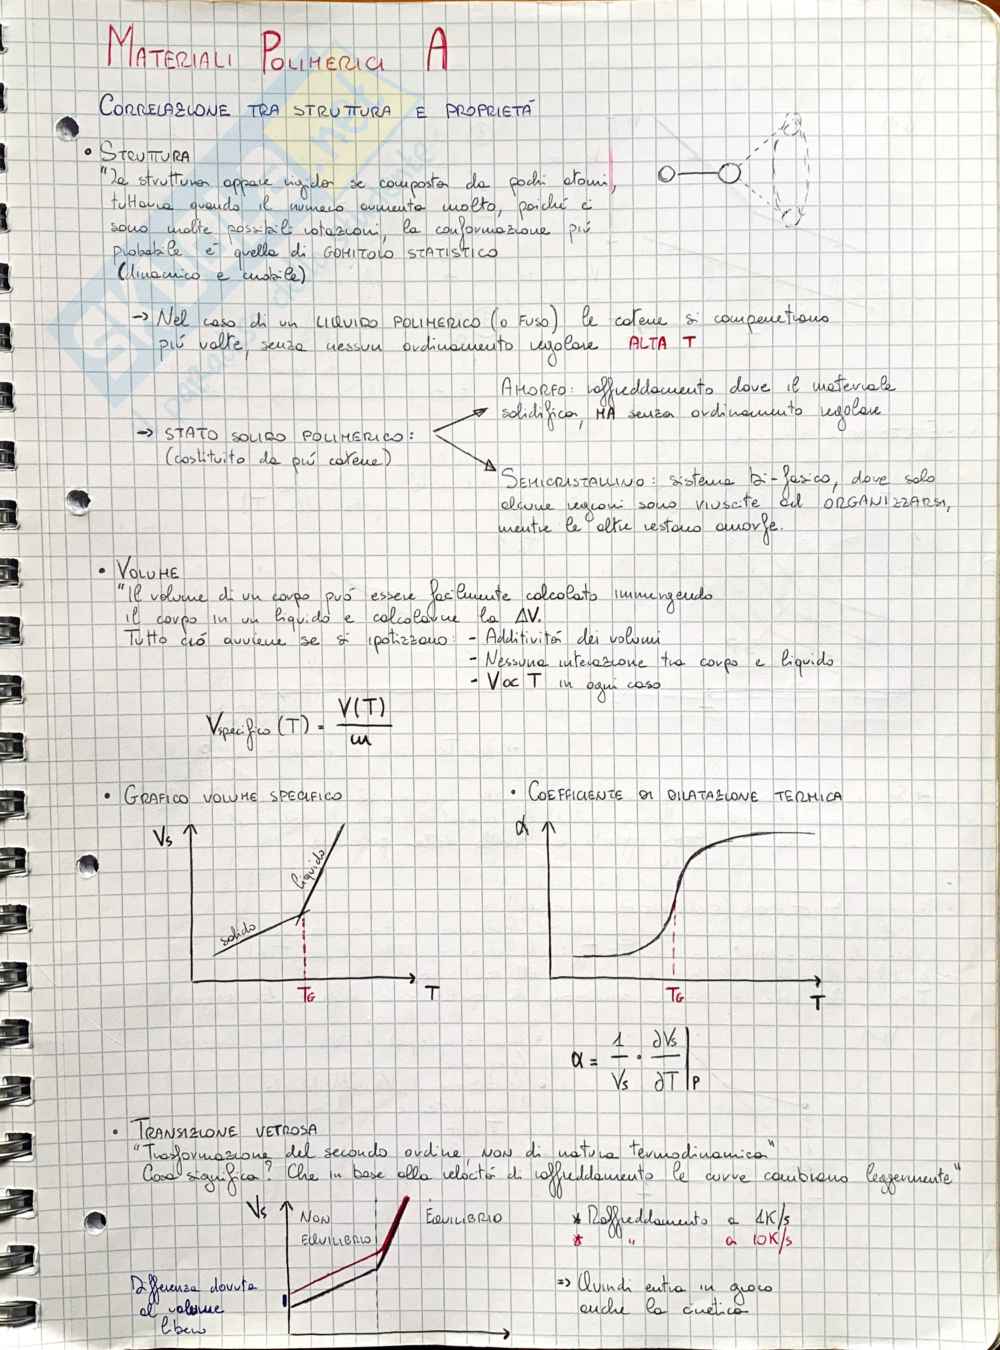 MATERIALI POLIMERICI A
CORRELAZIONE TRA STRUTTURA E PROPRIETÁ
• STRUTTURA
"La struttura appare rigida se composta da pochi atomi,
tuttavia quando il numero aumenta molto, poiché ci
sono molte possibili rotazioni, la conformazione piú
probabile é quella di GOMITOLO STATISTICO
(dinamico e mobile)
→ Nel caso di un LIQUIDO POLIMERICO (o FUSO) le catene si compenetrano
piú volte, senza nessun ordinamento regolare ALTA T
AMORFO: raffreddamento dove il materiale
solidifica, MA senza ordinamento regolare
→ STATO SOLIDO POLIMERICO:
(costituito da piú catene)
SEMICRISTALLINO: sistema bi-fasico, dove solo
alcune regioni sono riuscite ad ORGANIZZARSI,
mentre le altre restano amorfe.
• VOLUME
"Il volume di un corpo puó essere facilmente calcolato immergendo
il corpo in un liquido e calcolarne la ΔV.
Tutto ció avviene se si ipotizzano: - Additivitá dei volumi
- Nessuna interazione tra corpo e liquido
- V∝T in ogni caso
Vspecifico (T) = V(T) / m
• GRAFICO VOLUME SPECIFICO
• COEFFICIENTE DI DILATAZIONE TERMICA
Vs
liquido
solido
TG
T
α
TG
T
α = 1/Vs · ∂Vs/∂T |P
• TRANSIZIONE VETROSA
"Trasformazione del secondo ordine, NON di natura termodinamica"
Cosa significa? Che in base alla velocitá di raffreddamento le curve cambiano leggermente"
Vs
NON
EQUILIBRIO
EQUILIBRIO
* Raffreddamento a 1K/s
* " a 10K/s
Differenza dovuta
al volume
libero
=> Quindi entra in gioco
anche la cinetica
SKUOLA.net